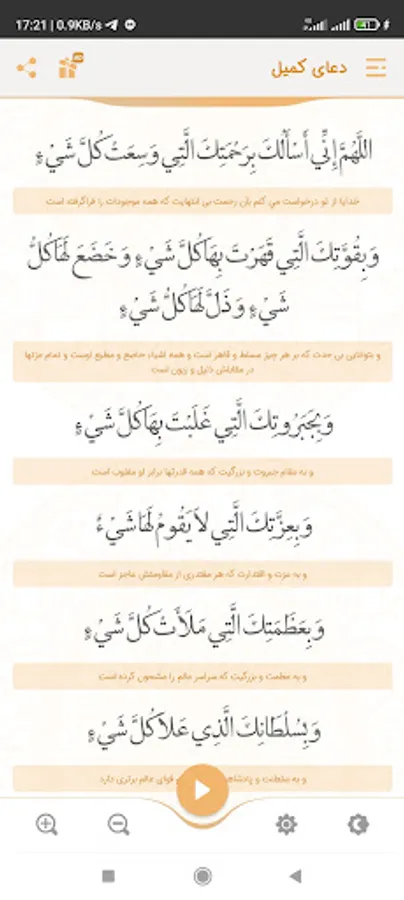 17:21 | 0.9KB/s
41
دعای کمیل
AD
اللَّهُمَّ إِنِّي أَسْأَلُكَ بِرَحْمَتِكَ الَّتِي وَسِعَتْ كُلَّ شَيْءٍ
خدایا از تو درخواست می کنم بآن رحمت بی انتهایت که همه موجودات را فراگرفته است
وَ بِقُوَّتِكَ الَّتِي قَهَرْتَ بِهَا كُلَّ شَيْءٍ وَ خَضَعَ لَهَا كُلُّ
شَيْءٍ وَ ذَلَّ لَهَا كُلُّ شَيْءٍ
و بتوانایی بی حدت که بر هر چیز مسلط و قاهر است و همه اشیاء خاضع و مطیع اوست و تمام عزتها
در مقابلش ذلیل و زبون است
وَ بِجَبَرُوتِكَ الَّتِي غَلَبْتَ بِهَا كُلَّ شَيْءٍ
و به مقام جبروت و بزرگیت که همه قدرتها برابر او مغلوب است
وَ بِعِزَّتِكَ الَّتِي لاَ يَقُومُ لَهَا شَيْءٌ
و به عزت و اقتدارت که هر مقتدری از مقاومتش عاجز است
وَ بِعَظَمَتِكَ الَّتِي مَلَأَتْ كُلَّ شَيْءٍ
و به عظمت و بزرگیت که سراسر عالم را مشحون کرده است
وَ بِسُلْطَانِكَ الَّذِي عَلاَ كُلَّ شَيْءٍ
و به سلطنت و پادشاهی قوای عالم برتری دارد